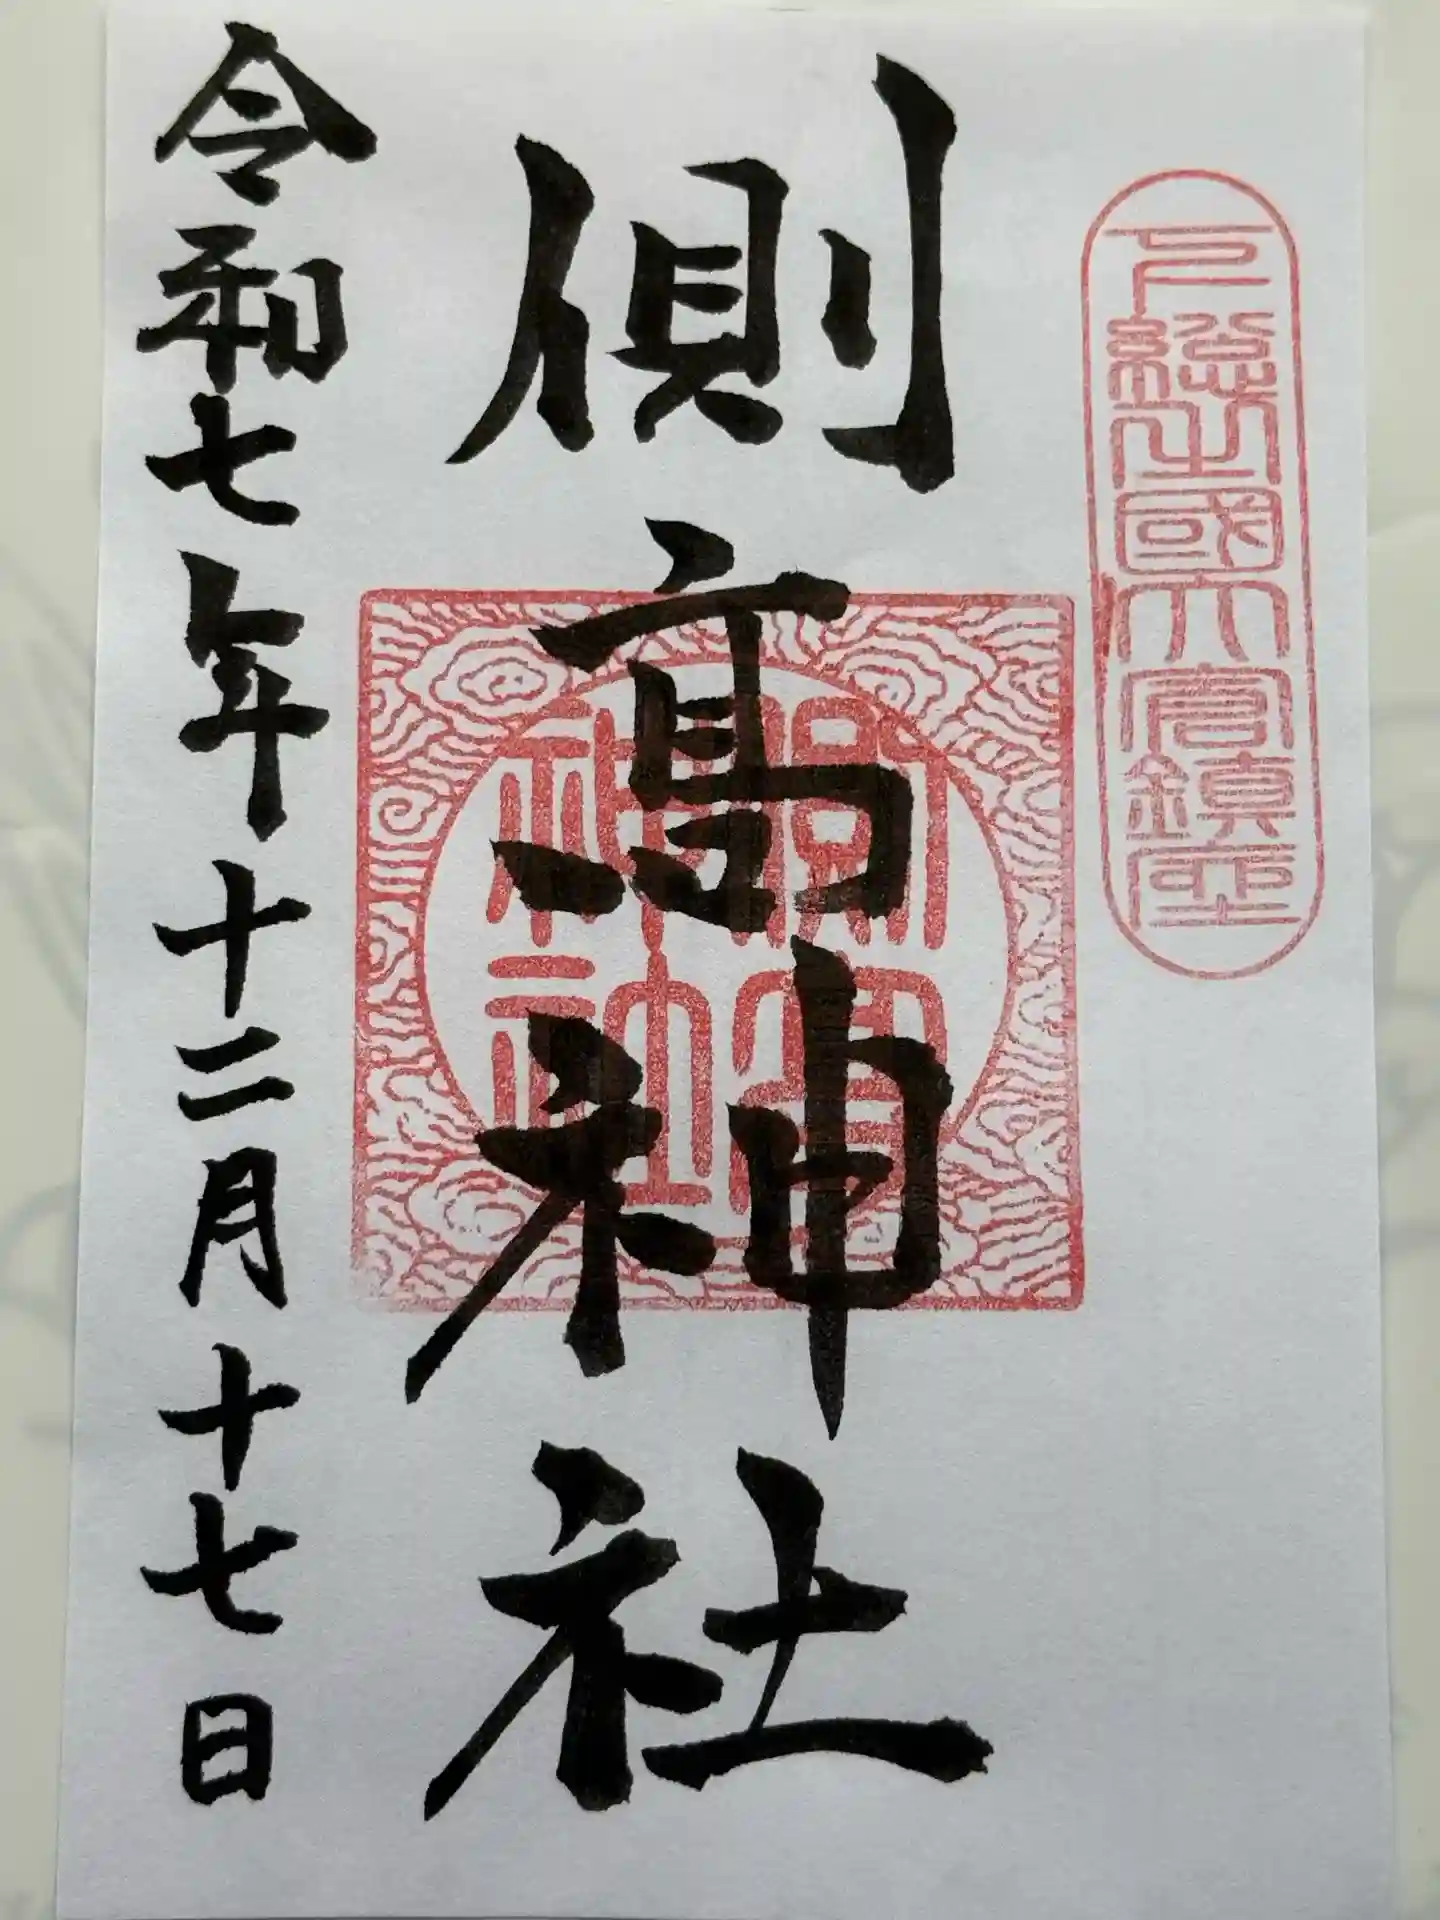 下總之國大倉鎮座
側髙神社
側高
神社
令和七年十二月十七日